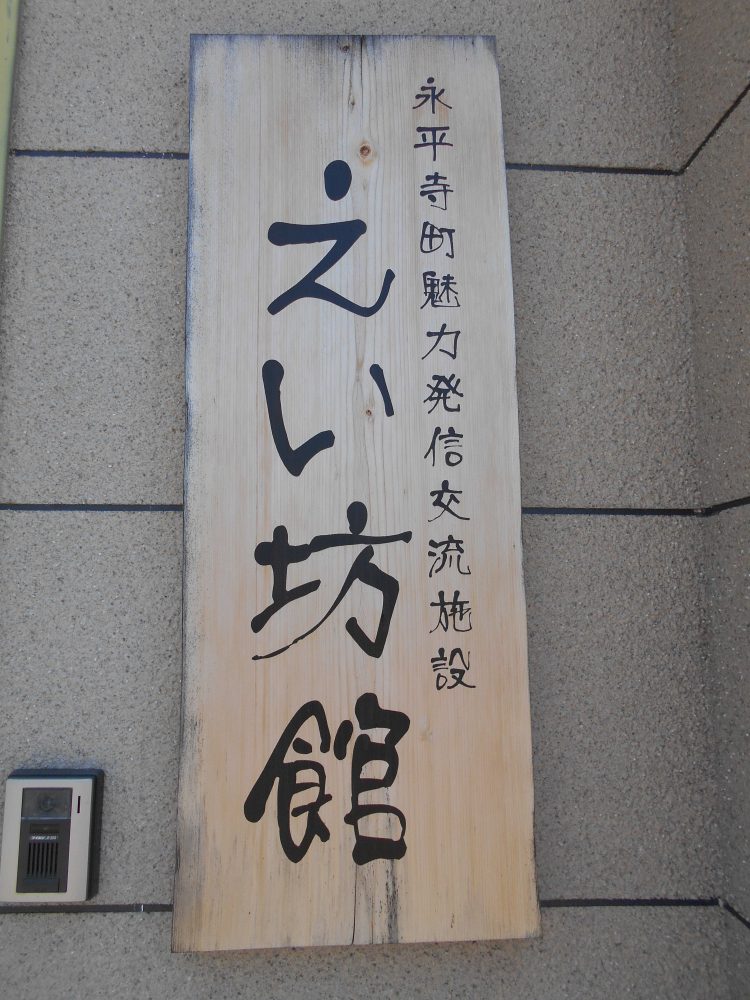 永平寺町魅力発信交流施設
えい坊館